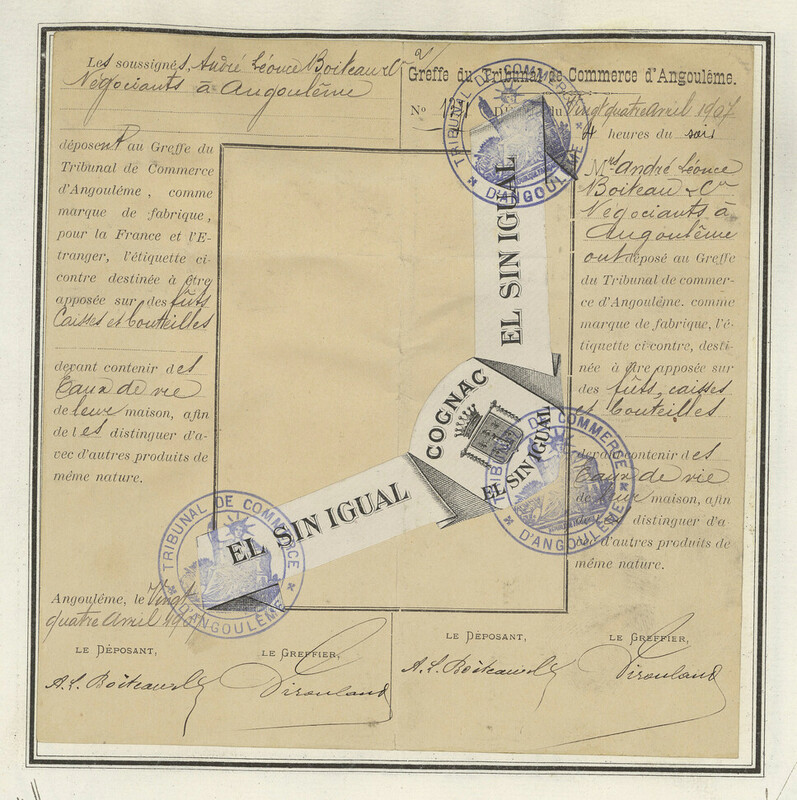 Les soussignés, André Léonce Boiteau & Cie
Négociants à Angoulême
déposent au Greffe du
Tribunal de Commerce
d'Angoulême, comme
marque de fabrique,
pour la France et l'E-
tranger, l'étiquette ci-
contre destinée à être
apposée sur des fûts
Caisses et bouteilles
devant contenir des
Eaux de vie
de leur maison, afin
de les distinguer d'a-
vec d'autres produits de
même nature.
Angoulême, le Vingt
quatre Avril 1907
LE DÉPOSANT,
LE GREFFIER,
A. L. Boiteau & Cie
Greffe du Tribunal de Commerce d'Angoulême.
No
du Vingt quatre Avril 1907
4 heures du soir
Mrs André Léonce
Boiteau & Cie
Négociants à
Angoulême
ont déposé au Greffe
du Tribunal de commer-
ce d'Angoulême. comme
marque de fabrique, l'é-
tiquette ci-contre, desti-
née à être apposée sur
des fûts, caisses
et bouteilles
devant contenir des
Eaux de vie
de leur maison, afin
de les distinguer d'a
vec d'autres produits de
même nature.
LE DÉPOSANT,
LE GREFFIER,
A. L. Boiteau & Cie
EL SIN IGUAL
COGNAC
EL SIN IGUAL
EL SIN IGUAL
TRIBUNAL DE COMMERCE
D'ANGOULÊME
TRIBUNAL DE COMMERCE
D'ANGOULÊME
TRIBUNAL DE COMMERCE
D'ANGOULÊME